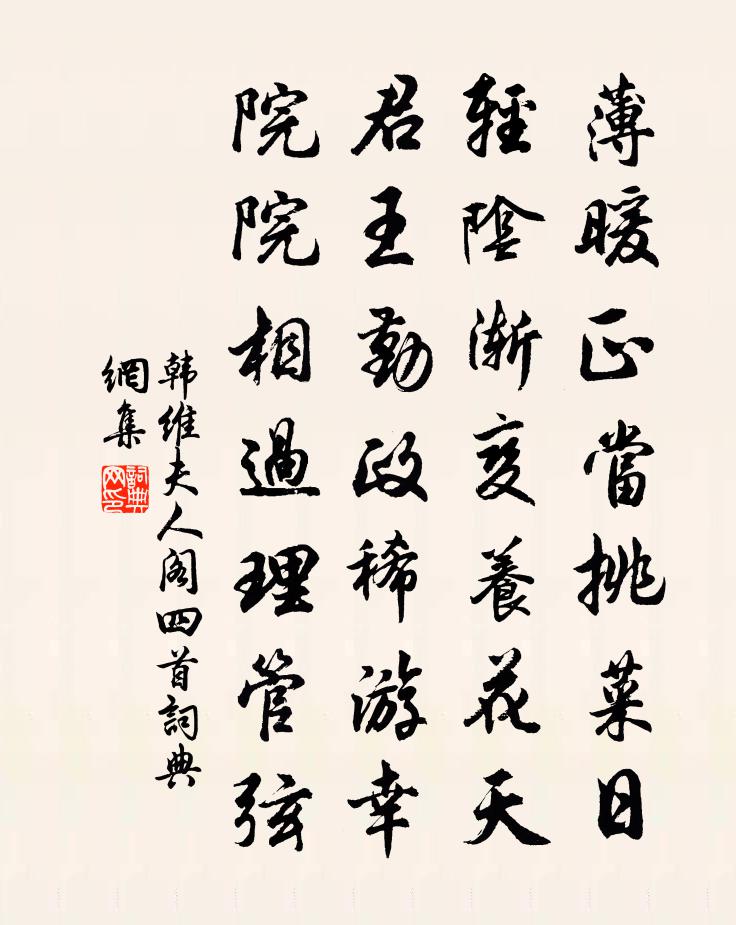 薄暖正當挑菜日
輕陰漸变養花天
君王勤政稀游幸
院院相過理管弦
韩维夫人阁四首詞典
網集
詞典
网印